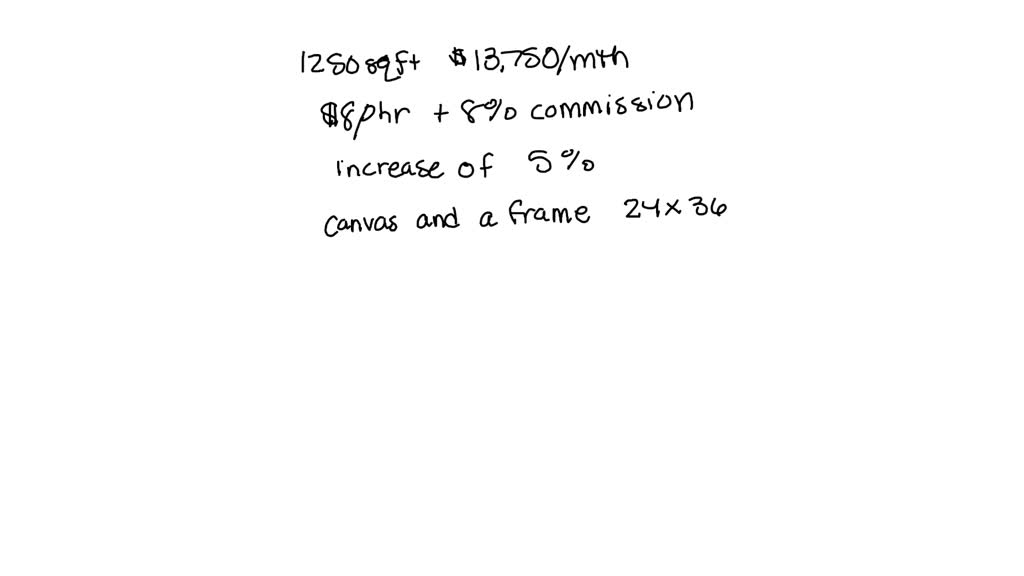 1250 sqft $13,750/mth
$8phr + 8% commission
increase of 5%
canvas and a frame 24x36